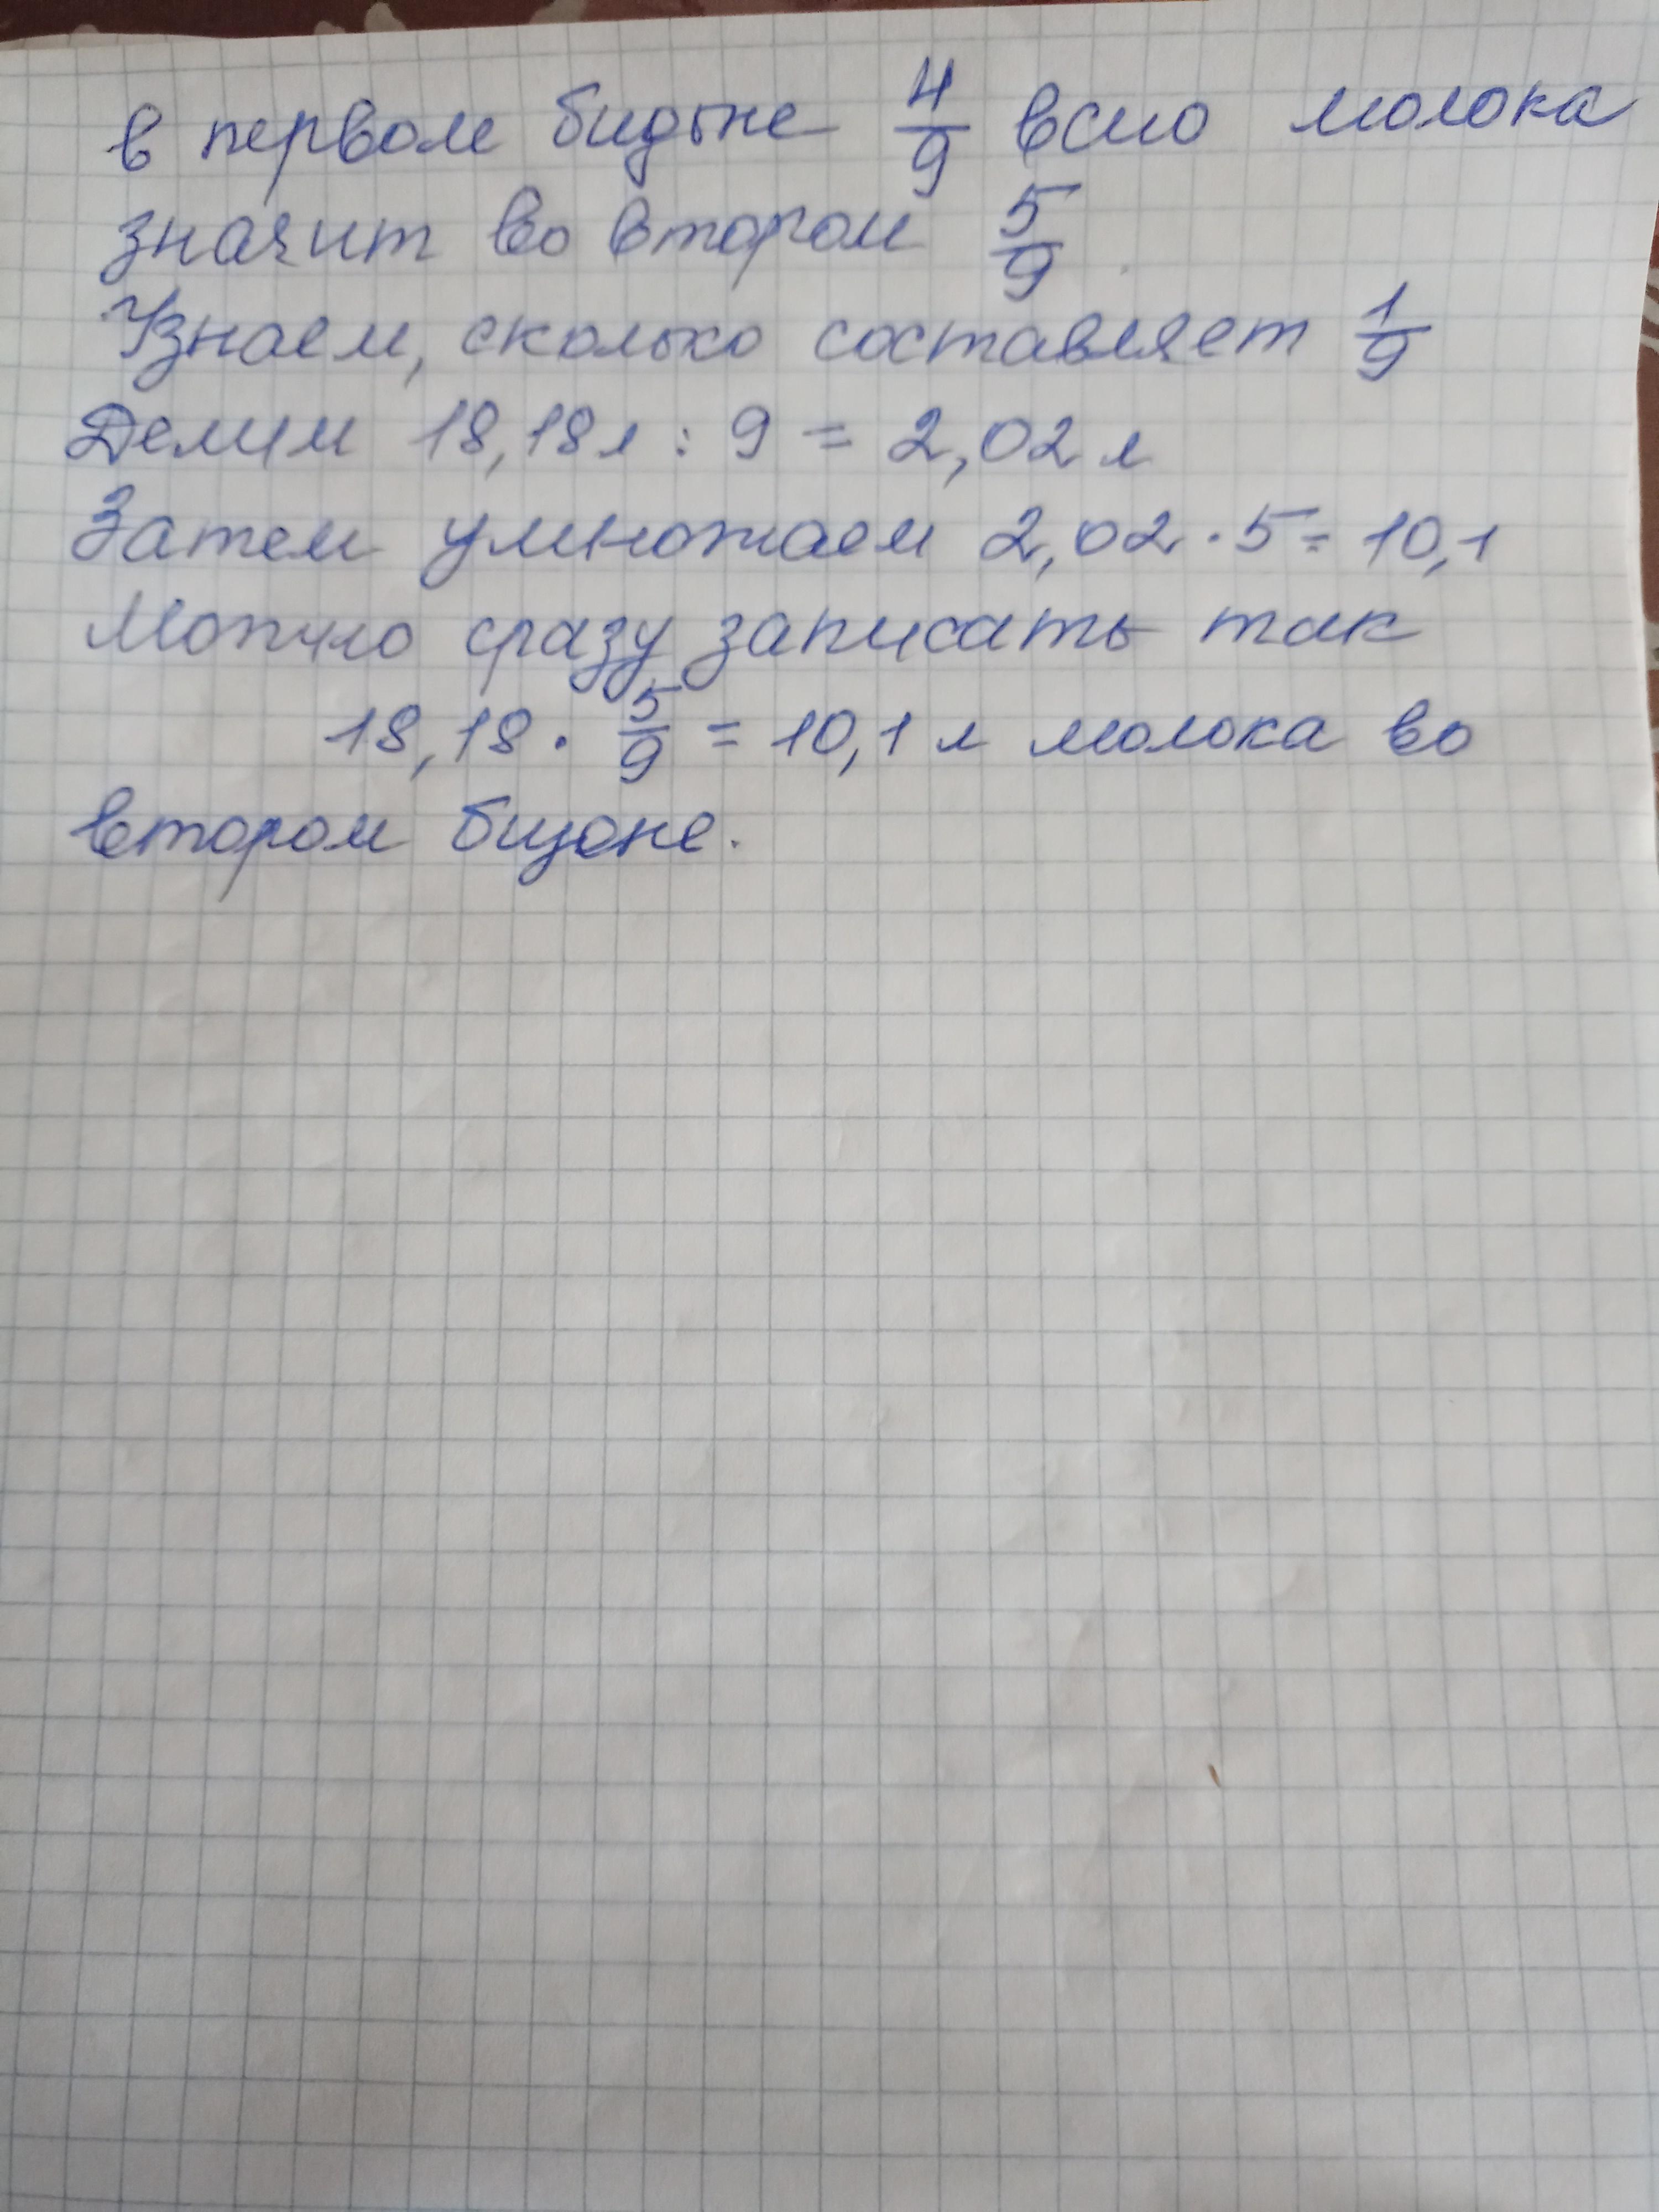 в первом бидоне 4/9 всего молока
значит во втором 5/9.
Узнаем, сколько составляет 1/9
Делим 18,18 л : 9 = 2,02 л
Затем умножаем 2,02 · 5 = 10,1
Можно сразу записать так
18,18 · 5/9 = 10,1 л молока во
втором бидоне.